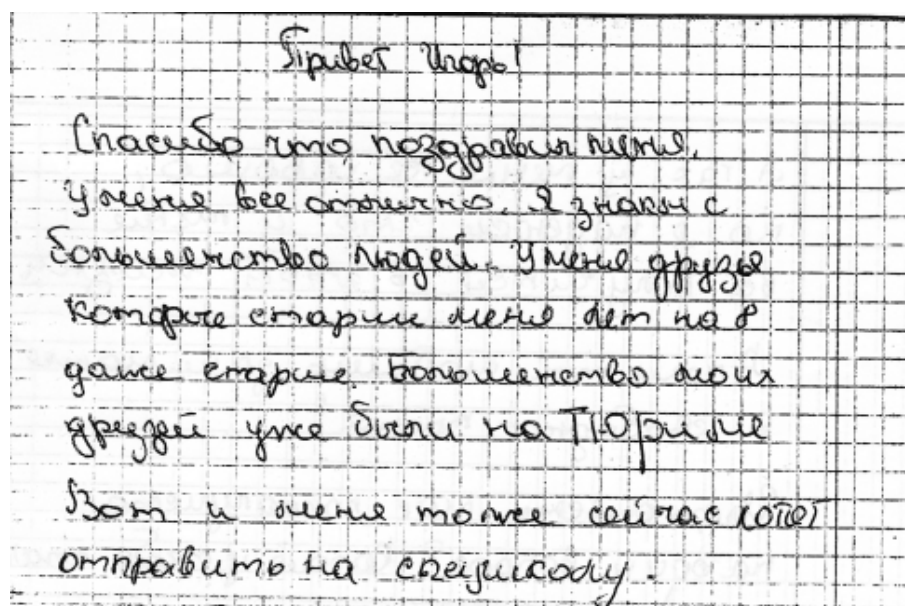 Привет Игорь!
Спасибо что поздравил меня.
У меня все отлично. Я знаком с
большенство людей. У меня друзья
которые старши меня лет на 8
даже старше. Большенство моих
друзей уже были на ТЮрьме
Вот и меня тоже сейчас хотет
отправить на спецшколу.